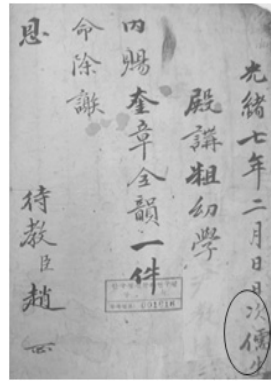 光緖七年二月日日次儒生
殿講粗幼學
內賜奎章全韻一件
命除謝
恩
待敎臣趙